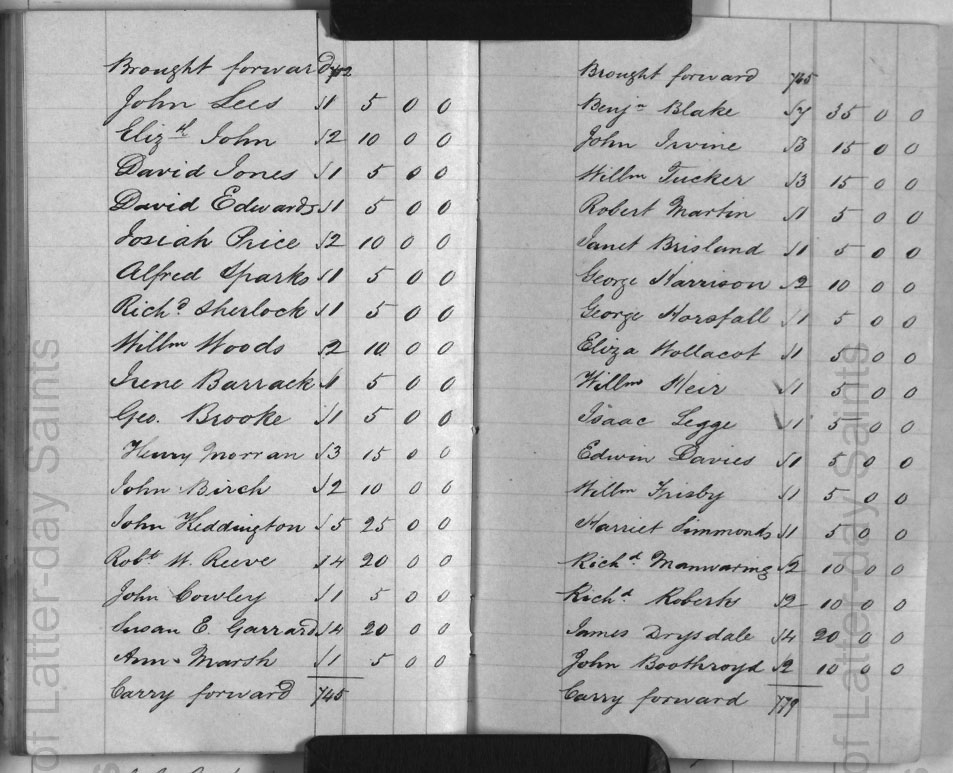 Brought forward 712
John Lees √1 5 0 0
Eliz.th John √2 10 0 0
David Jones √1 5 0 0
David Edwards √1 5 0 0
Josiah Price √2 10 0 0
Alfred Sparks √1 5 0 0
Rich.d Sherlock √1 5 0 0
Willm Woods √2 10 0 0
Irene Barrack √1 5 0 0
Geo. Brooke √1 5 0 0
Henry Morran √3 15 0 0
John Birch √2 10 0 0
John Keddington √5 25 0 0
Rob.t W. Reeve √4 20 0 0
John Cowley √1 5 0 0
Susan E. Garrard √4 20 0 0
Ann Marsh √1 5 0 0
Carry forward 745
Brought forward 745
Benj.n Blake √7 35 0 0
John Irvine √3 15 0 0
Willm Tucker √3 15 0 0
Robert Martin √1 5 0 0
Janet Brisland √1 5 0 0
George Harrison √2 10 0 0
George Horsfall √1 5 0 0
Eliza Wollacot √1 5 0 0
Willm Heir √1 5 0 0
Isaac Legge √1 5 0 0
Edwin Davies √1 5 0 0
Willm Frisby √1 5 0 0
Harriet Simmonds √1 5 0 0
Rich.d Manwaring √2 10 0 0
Rich.d Roberts √2 10 0 0
James Drysdale √4 20 0 0
John Boothroyd √2 10 0 0
Carry forward 779
of Latter-day Saints
of Latter-day Saints